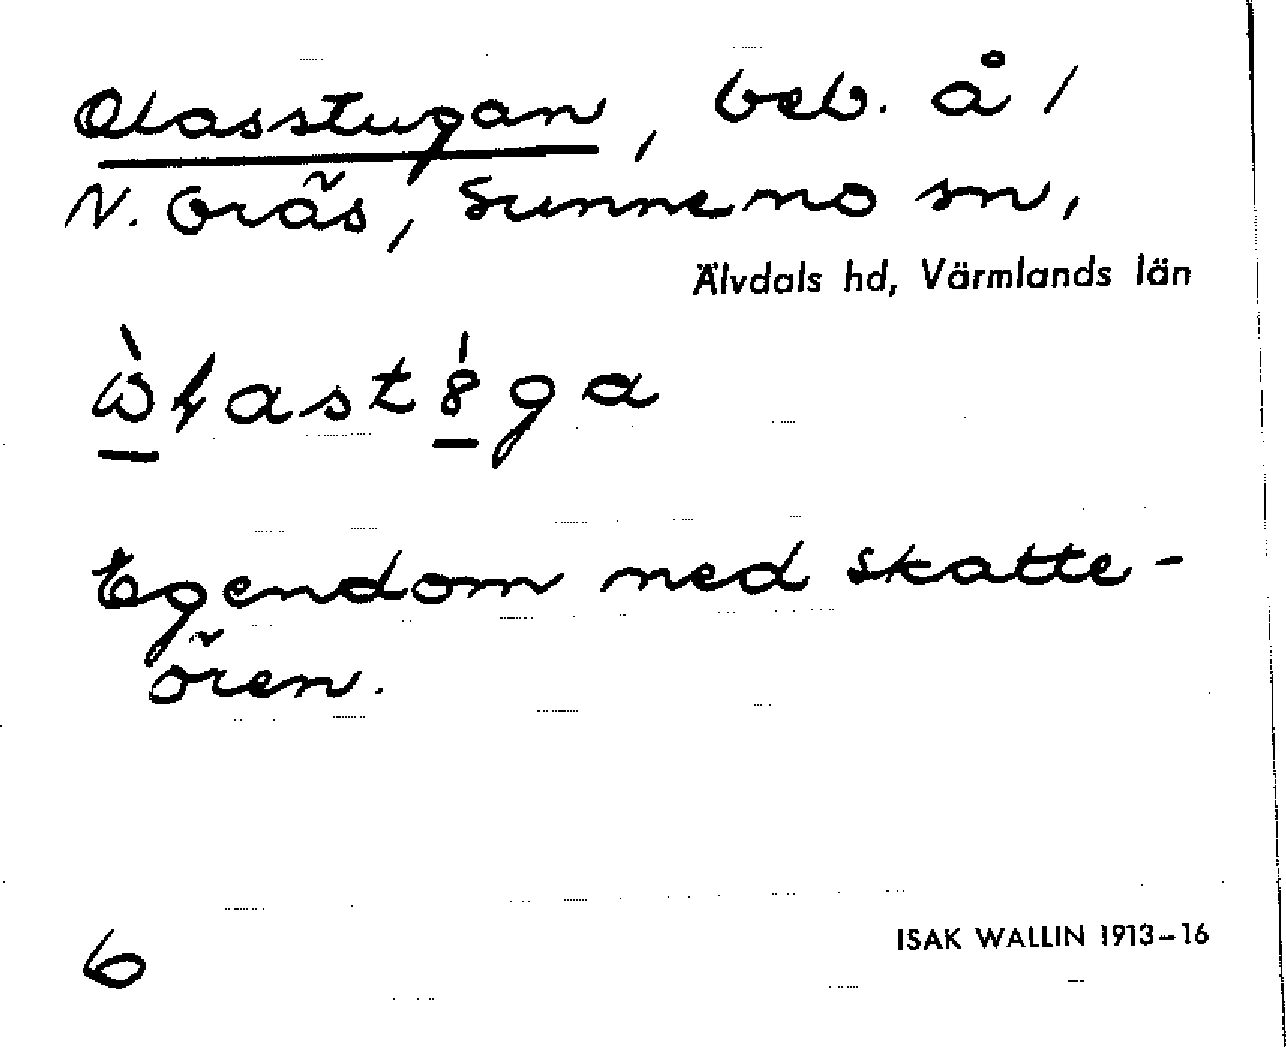 Olasstugan, beb. å 1
N. Gräs, Sunnemo sn,
Älvdals hd, Värmlands län
Egendom med skatte-
ören.
6
ISAK WALLIN 1913–16